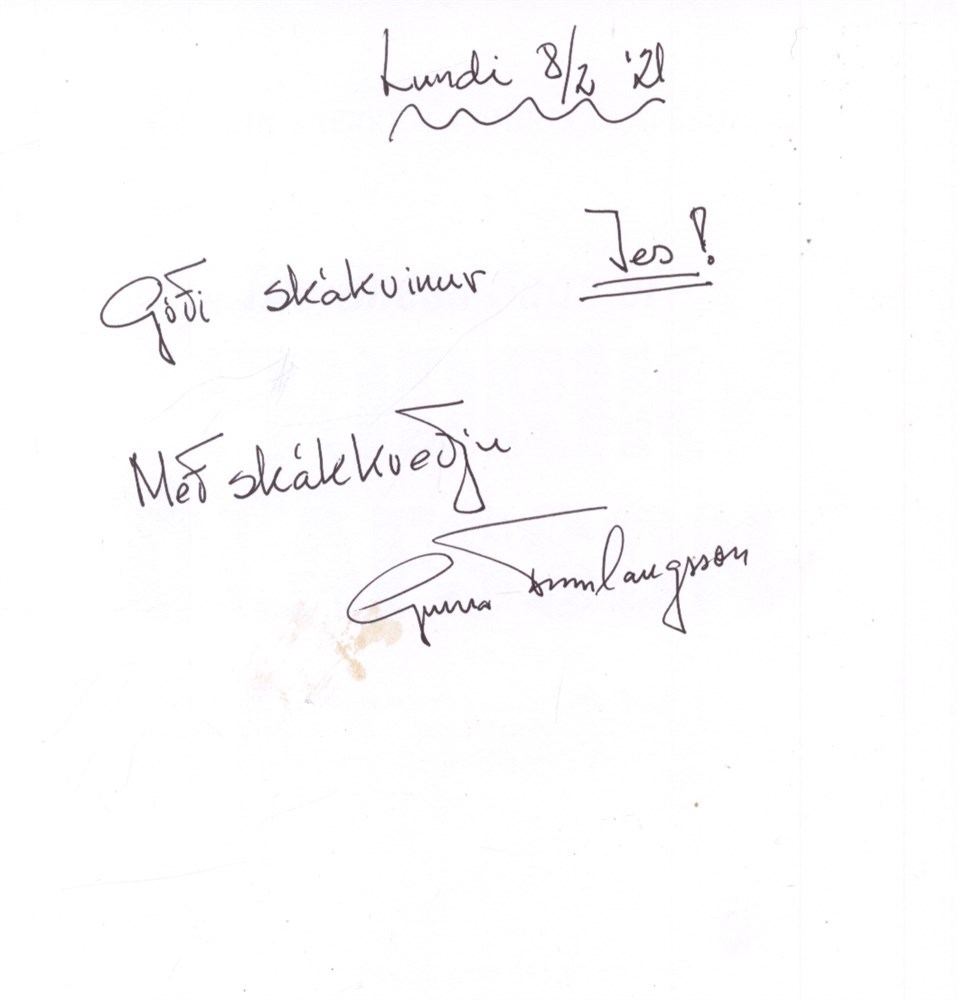 Lundi 8/2 '21
Góði skákvinur Jes!
Með skákkveðju
Gunna Finnlaugsson